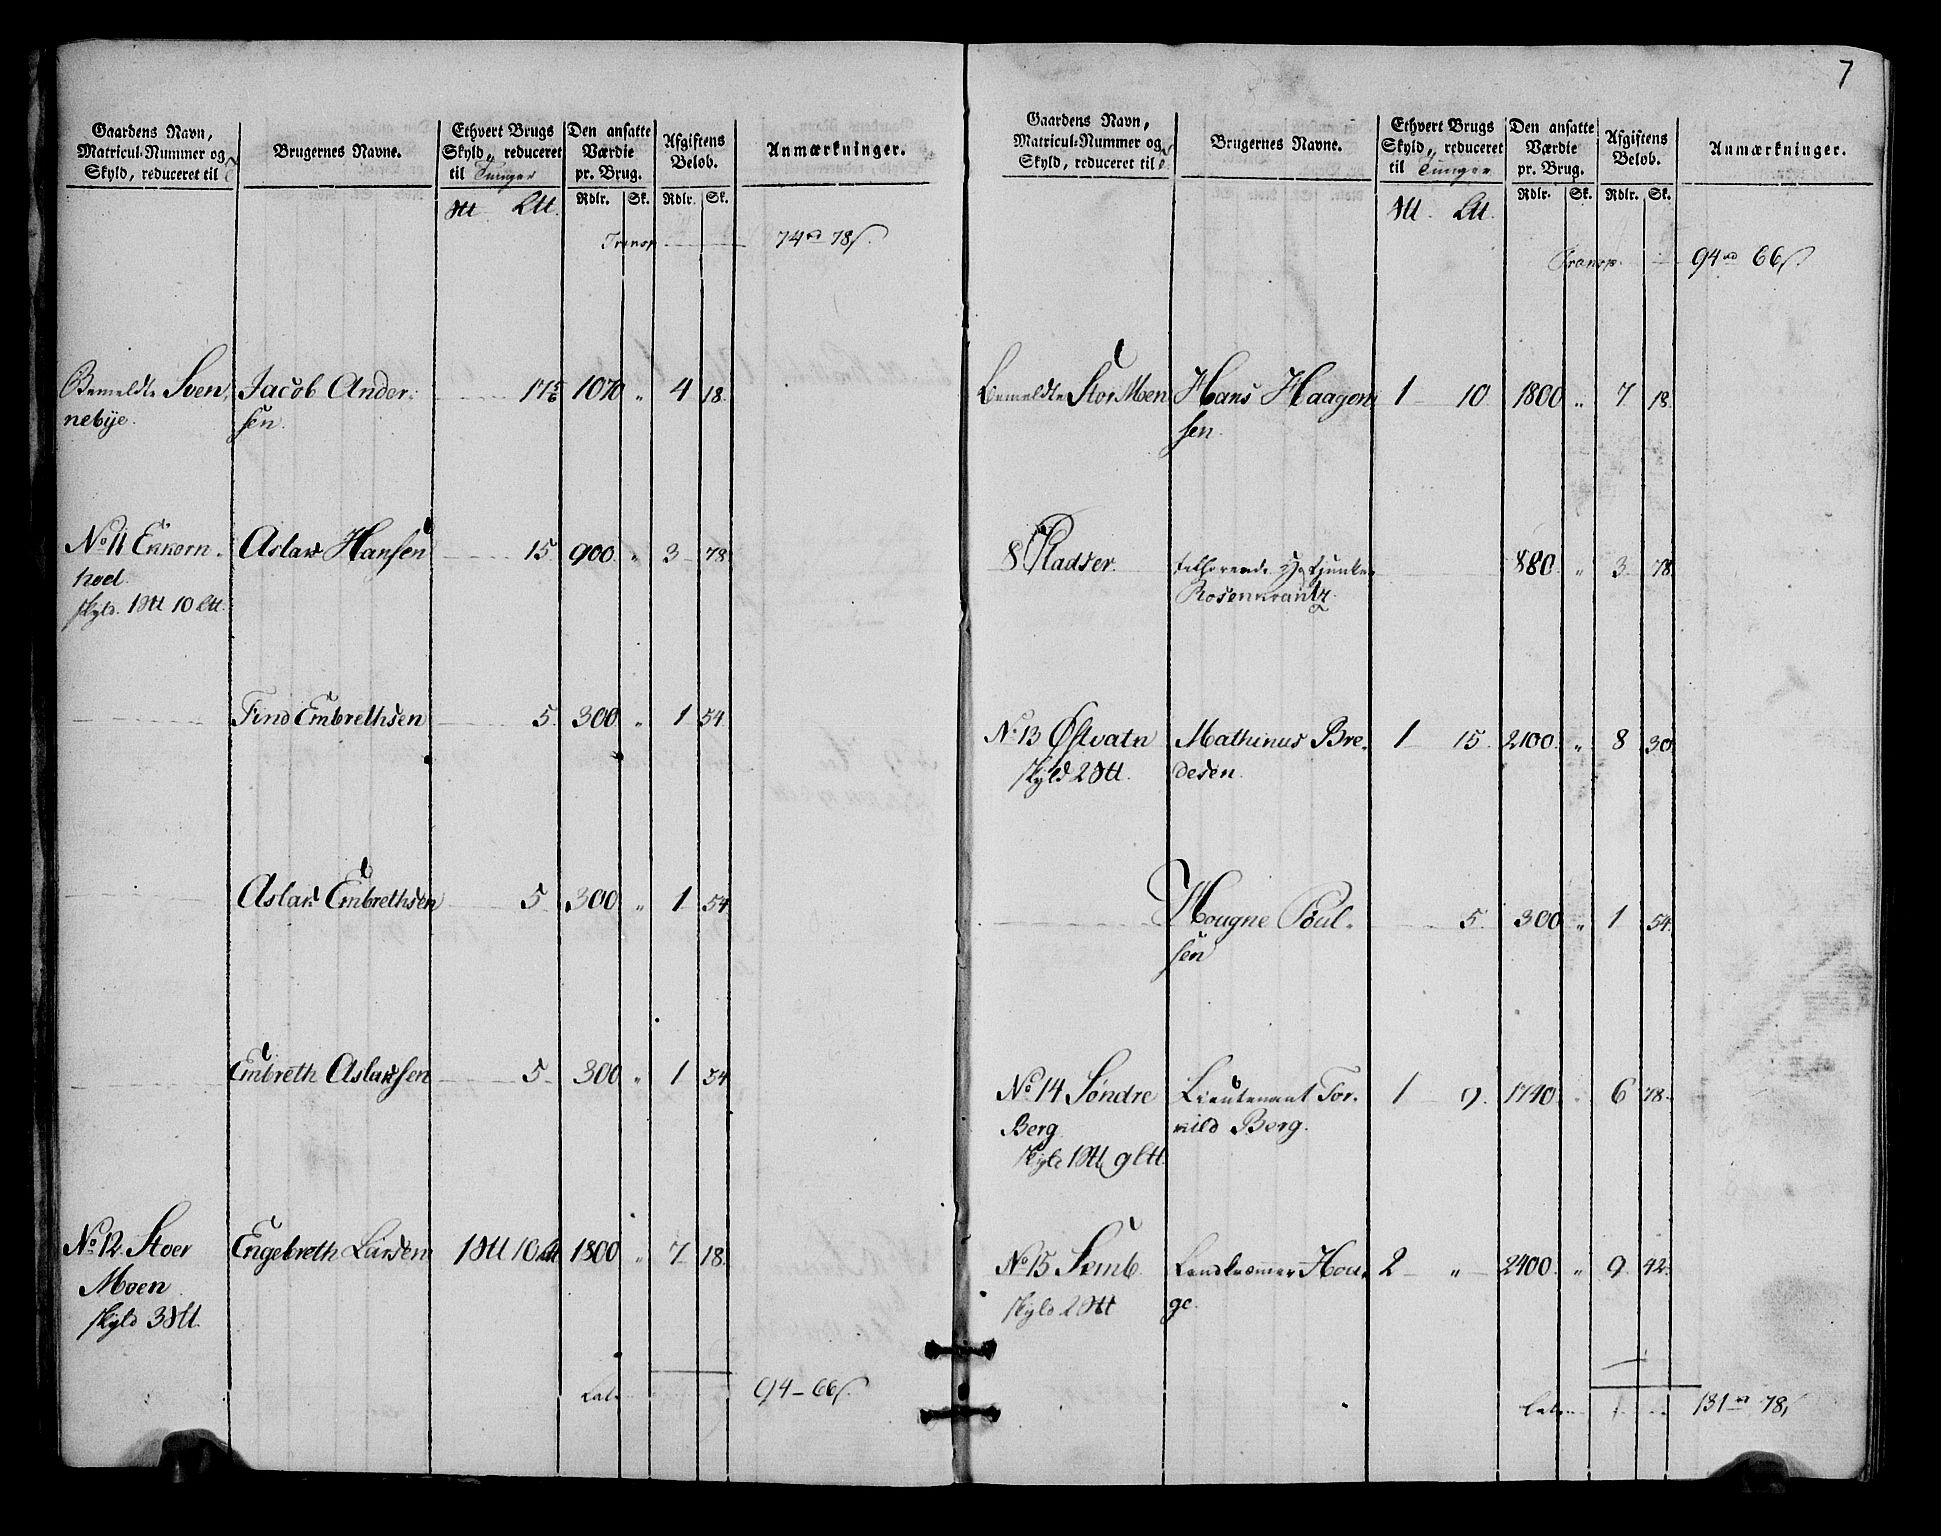 7
Gaardens Navn,
Matricul-Nummer og
Skyld, reduceret til
Brugernes Navne.
Ethvert Brugs
Skyld, reduceret
til Tunger
Den ansatte
Værdie
pr. Brug.
Afgiftens
Beløb.
Anmærkninger.
Rdlr. Sk. Rdlr. Sk.
Transp. 74 rd 78 s.
Bemeldte Sven, Jacob Ander: 17 5/6 1070 „ 4 18.
nebÿe. sen.
No 11 Ekkorn- Aslak Hansen 15 900. „ 3 78
hoel
skyld. 1 10
Find Embrethsen 5 300 „ 1 54.
Aslak Embrethsen 5 300 „ 1 54
Embreth Aslaksen 5 300 „ 1 54
No 12. Stoer Engebreth Larsen 1 10 1800 „ 7 18.
Moen
skyld 3
Lat. 94 – 66 s.
Gaardens Navn,
Matricul-Nummer og
Skyld, reduceret til
Brugernes Navne.
Ethvert Brugs
Skyld, reduceret
til Tunger
Den ansatte
Værdie
pr. Brug.
Afgiftens
Beløb.
Anmærkninger.
Rdlr. Sk. Rdlr. Sk.
Transp. 94 rd 66 s.
Bemeldte Stor Moen Hans Haagen 1 10 1800 „ 7 18
sen.
8 Pladser. tilhørende 880. „ 3 78.
Rosenkrantz.
No 13 Østvatn Mathinus Bre- 1 15. 2100. „ 8 30
skyld 2 desen.
Hougne Poul- 5. 300 „ 1 54.
sen
No 14 Søndre Lieutenant Tor- 1 9. 1740. 6 78.
Berg kild Berg.
skyld 1 9
No 15 Somb. Landkræmmer Hou- 2 „ 2400. „ 9. 42.
skyld 2 ge.
Lat. 131 rd 78 s